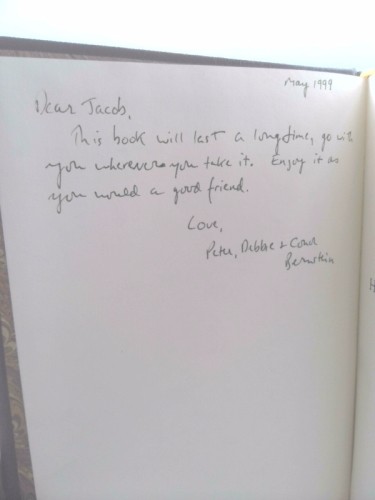 May 1999
Dear Jacob,
This book will last a long time, go with
you wherever you take it. Enjoy it as
you would a good friend.
Love,
Peter, Debbie &
Bernstein
H